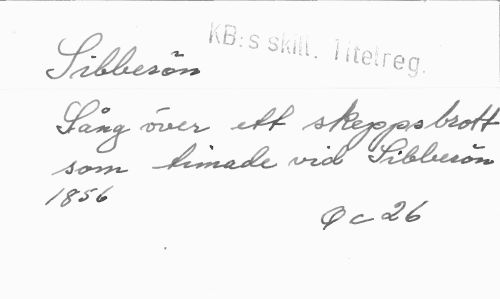 KB:s skill. Titelreg.
Sibberön
Sång över ett skeppsbrott
som timade vid Sibberön
1856
Qc 26